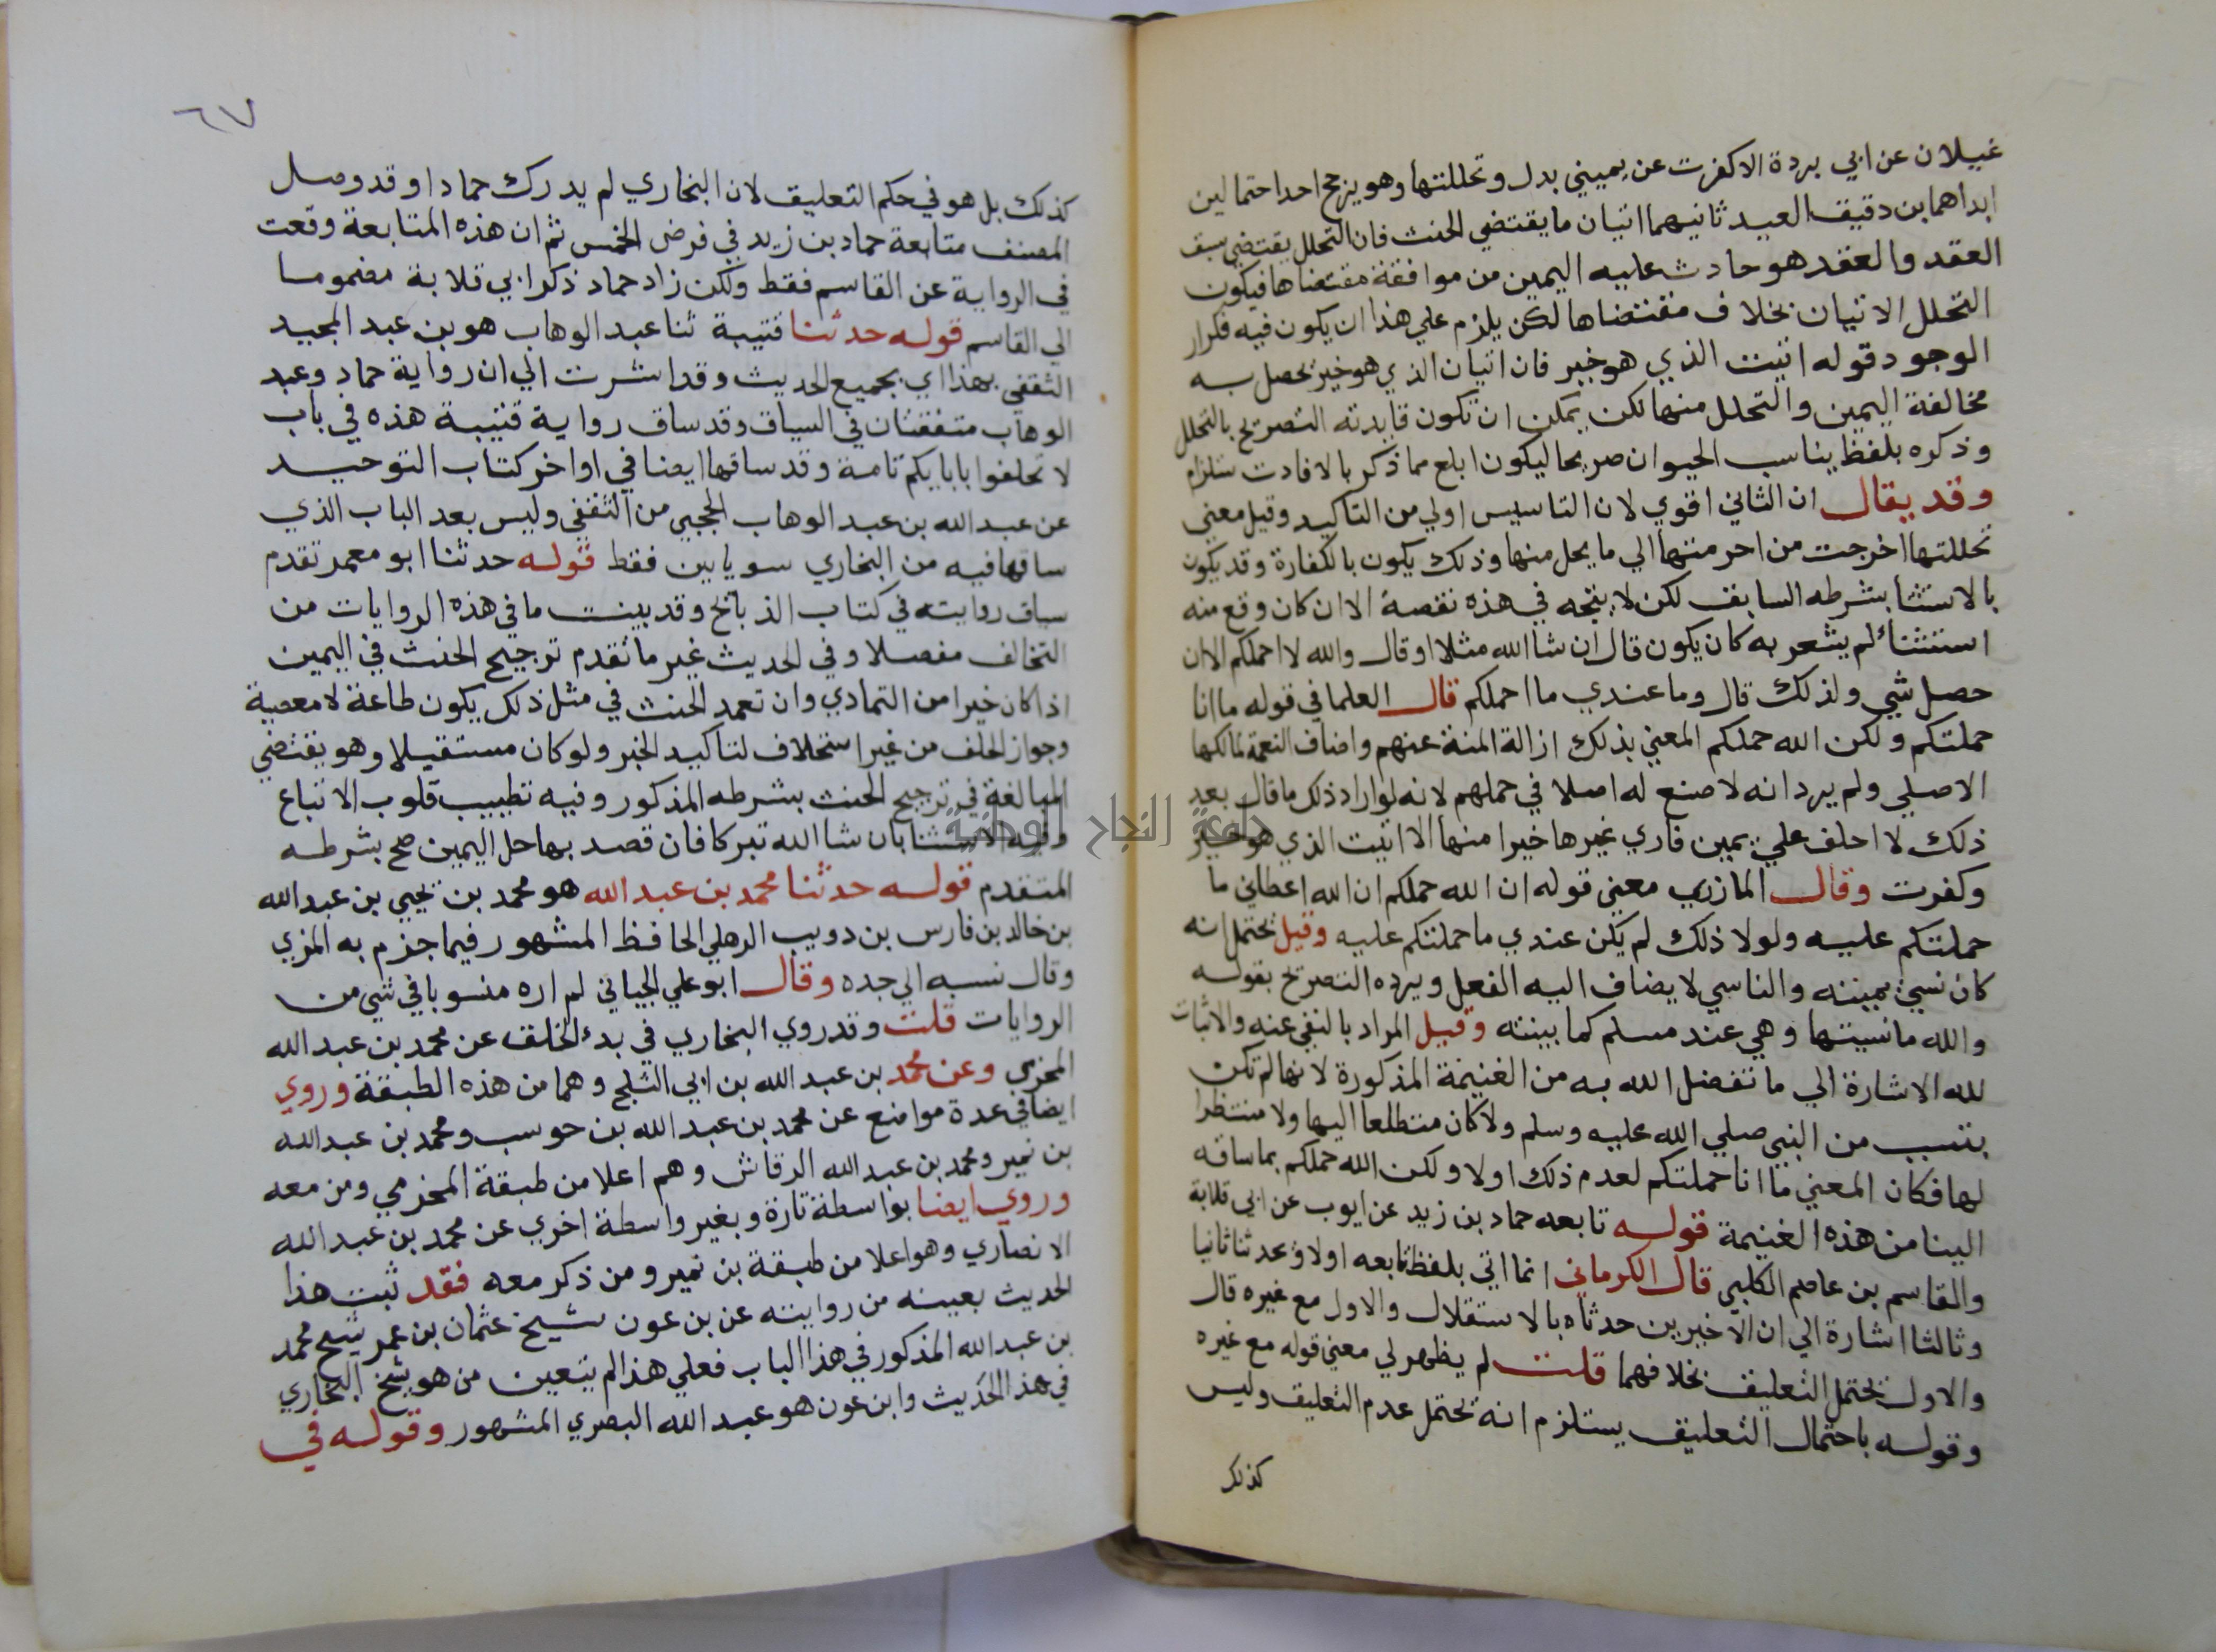 غيلان عن ابي بردة الا كفرت عن يميني بدل وتحللتها وهو يرجح احد احتمالين
ابداهما بن دقيق العيد ثانيهما اتيان ما يقتضي الحنث فان التحلل يقتضي سبق
العقد والعقد هو ما دلت عليه اليمين من موافقة مقتضاها فيكون
التحلل الاتيان بخلاف مقتضاها لكن يلزم علي هذا ان يكون فيه تكرار
الوجود قوله اتيت الذي هو خير فان اتيان الذي هو خير تحصل به
مخالفة اليمين والتحلل منها لكن يمكن ان تكون فايدته التصريح بالتحلل
وذكره بلفظ يناسب الحيوان صريحا ليكون ابلغ مما ذكر بالافادت ستلزام
وقد يقال ان الثاني اقوي لان التاسيس اولي من التاكيد وقيل معني
تحللتها اخرجت من احرمتها الي ما يحل منها وذلك يكون بالكفارة وقد يكون
بالاستثنا بشرطه السابق لكن لا يتجه في هذه نقصة الا ان كان وقع منه
استثناء لم يشعر به كان يكون قال ان شا الله مثلا او قال والله لا احملكم الا ان
حصل شي ولذلك قال وما عندي ما احملكم قال العلما في قوله ما انا
حملتكم ولكن الله حملكم المعني بذلك ازالة المنة عنهم واضاف النعمة لمالكها
الاصلي ولم يرد انه لا صنع له اصلا في حملهم لانه لو اراد ذلك ما قال بعد
ذلك لا احلف علي يمين فاري غيرها خيرا منها الا اتيت الذي هو خير
وكفرت وقال المازري معني قوله ان الله حملكم ان الله اعطاني ما
حملتكم عليه ولولا ذلك لم يكن عندي ما حملتكم عليه وقيل تحتمل انه
كان نسي يمينه والناسي لا يضاف اليه الفعل ويرده التصريح بقوله
والله ما نسيتها وهي عند مسلم كما بينته وقيل المراد بالنفي عنه والاثبات
لله الاشارة الي ما تفضل الله به من الغنيمة المذكورة لانها لم تكن
بتسبب من النبي صلي الله عليه وسلم ولا كان متطلعا اليها ولا منتظرا
لها فكان المعني ما انا حملتكم لعدم ذلك اولا ولكن الله حملكم بما ساقه
الينا من هذه الغنيمة قوله تابعه حماد بن زيد عن ايوب عن ابي قلابة
والقاسم بن عاصم الكليبي قال الكرماني انما اتي بلفظ تابعه اولا وبحدثنا ثانيا
وثالثا اشارة الي ان الاخيرين حدثاه بالاستقلال والاول مع غيره قال
والاول يحتمل التعليق بخلافهما قلت لم يظهر لي معني قوله مع غيره
وقوله باحتمال التعليق يستلزم انه يحتمل عدم التعليق وليس
كذلك
٦٧
كذلك بل هو في حكم التعليق لان البخاري لم يدرك حمادا وقد وصل
المصنف متابعة حماد بن زيد في فرض الخمس ثم ان هذه المتابعة وقعت
في الرواية عن القاسم فقط ولكن زاد حماد ذكر ابي قلابة مضموما
الي القاسم قوله حدثنا قتيبة ثنا عبد الوهاب هو بن عبد المجيد
الثقفي بهذا اي بجميع الحديث وقد اشرت الي ان رواية حماد وعبد
الوهاب متفقتان في السياق وقد ساق رواية قتيبة هذه في باب
لا تحلفوا بابايكم تامة وقد ساقها ايضا في اواخر كتاب التوحيد
عن عبد الله بن عبد الوهاب الحجبي من الثقفي وليس بعد الباب الذي
ساقها فيه من البخاري سوي بابين فقط قوله حدثنا ابو معمر تقدم
سياق روايته في كتاب الذبائح وقد بينت ما في هذه الروايات من
التخالف مفصلا وفي الحديث غير ما تقدم ترجيح الحنث في اليمين
اذا كان خيرا من التمادي وان تعمد الحنث في مثل ذلك يكون طاعة لا معصية
وجواز الحلف من غير استحلاف لتاكيد الخبر ولو كان مستقبلا وهو يقتضي
المبالغة في ترجيح الحنث بشرطه المذكور وفيه تطييب قلوب الاتباع
وفيه الاستثنا بان شا الله تبركا فان قصد بها حل اليمين صح بشرطه
المتقدم قوله حدثنا محمد بن عبد الله هو محمد بن يحيي بن عبد الله
بن خالد بن فارس بن دويب الدهلي الحافظ المشهور فيما جزم به المزي
وقال نسبه الي جده وقال ابو علي الجياني لم اره منسوبا في شي من
الروايات قلت وقد روي البخاري في بدء الخلق عن محمد بن عبد الله
المخرمي وعن محمد بن عبد الله بن ابي الثلج وهما من هذه الطبقة وروي
ايضا في عدة مواضع عن محمد بن عبد الله بن حوسب ومحمد بن عبد الله
بن نمير ومحمد بن عبد الله الرقاش وهم اعلا من طبقة المخرمي ومن معه
وروي ايضا بواسطة تارة وبغير واسطة اخري عن محمد بن عبد الله
الانصاري وهو اعلا من طبقة بن نمير ومن ذكر معه فقد ثبت هذا
الحديث بعينه من روايته عن بن عون شيخ عثمان بن عمر شيخ محمد
بن عبد الله المذكور في هذا الباب فعلي هذا لم يتعين من هو شيخ البخاري
في هذا الحديث وابن عون هو عبد الله البصري المشهور وقوله في
جامعة النجاح الوطنية